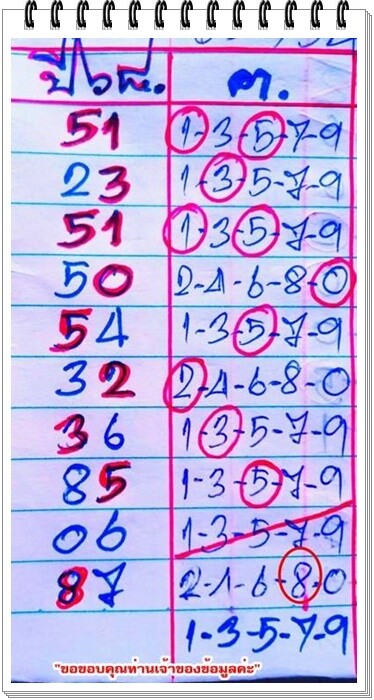 51 1-3-5-7-9
23 1-3-5-7-9
51 1-3-5-7-9
50 2-4-6-8-0
54 1-3-5-7-9
32 2-4-6-8-0
36 1-3-5-7-9
85 1-3-5-7-9
06 1-3-5-7-9
87 2-4-6-8-0
1-3-5-7-9
"ขอขอบคุณท่านเจ้าของข้อมูลค่ะ"